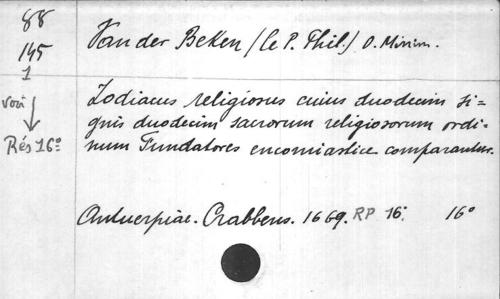 88
145
1
voir
Rés 16º
Van der Beken / (le P. Phil.) O. Minim.
Zodiacus religiosus cuius duodecim si=
gnis duodecim sacrorum religiosorum ordi=
num Fundatores encomiastice comparantur.
Antverpiae. Crabbens. 1669. RP 16º 16º